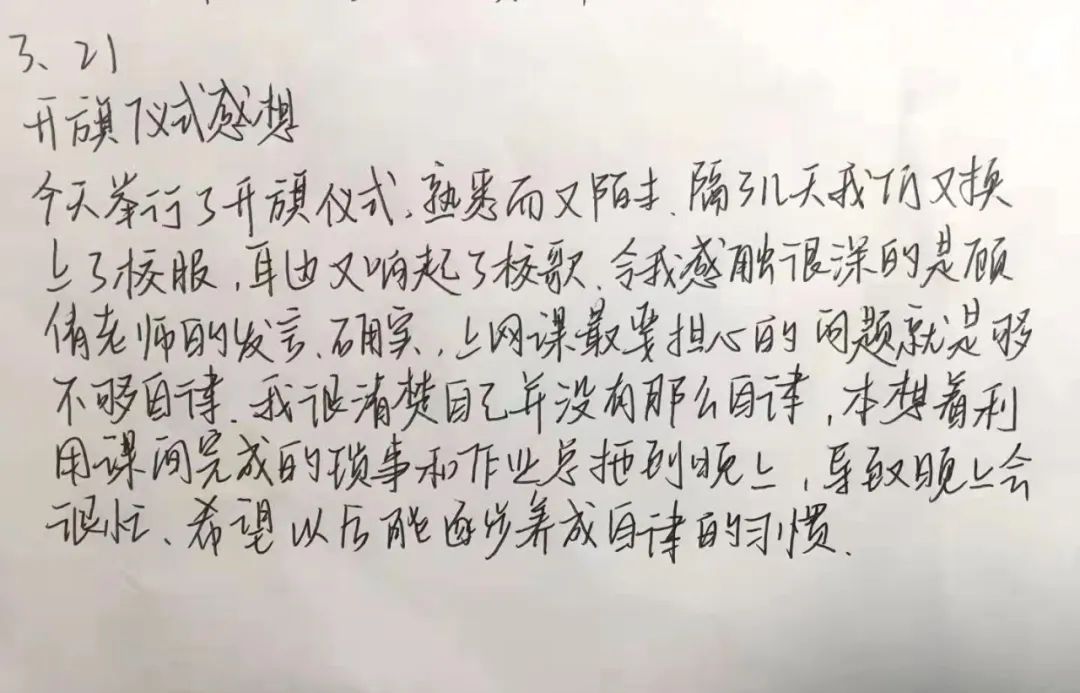 3、21
升旗仪式感想
今天举行了升旗仪式、熟悉而又陌生、隔了几天我们又换
上了校服、耳边又响起了校歌、令我感触很深的是顾
倩老师的发言、确实、上网课最要担心的问题就是够
不够自律、我很清楚自己并没有那么自律，本想着利
用课间完成的琐事和作业总拖到晚上，导致晚上会
很忙、希望以后能逐步养成自律的习惯、